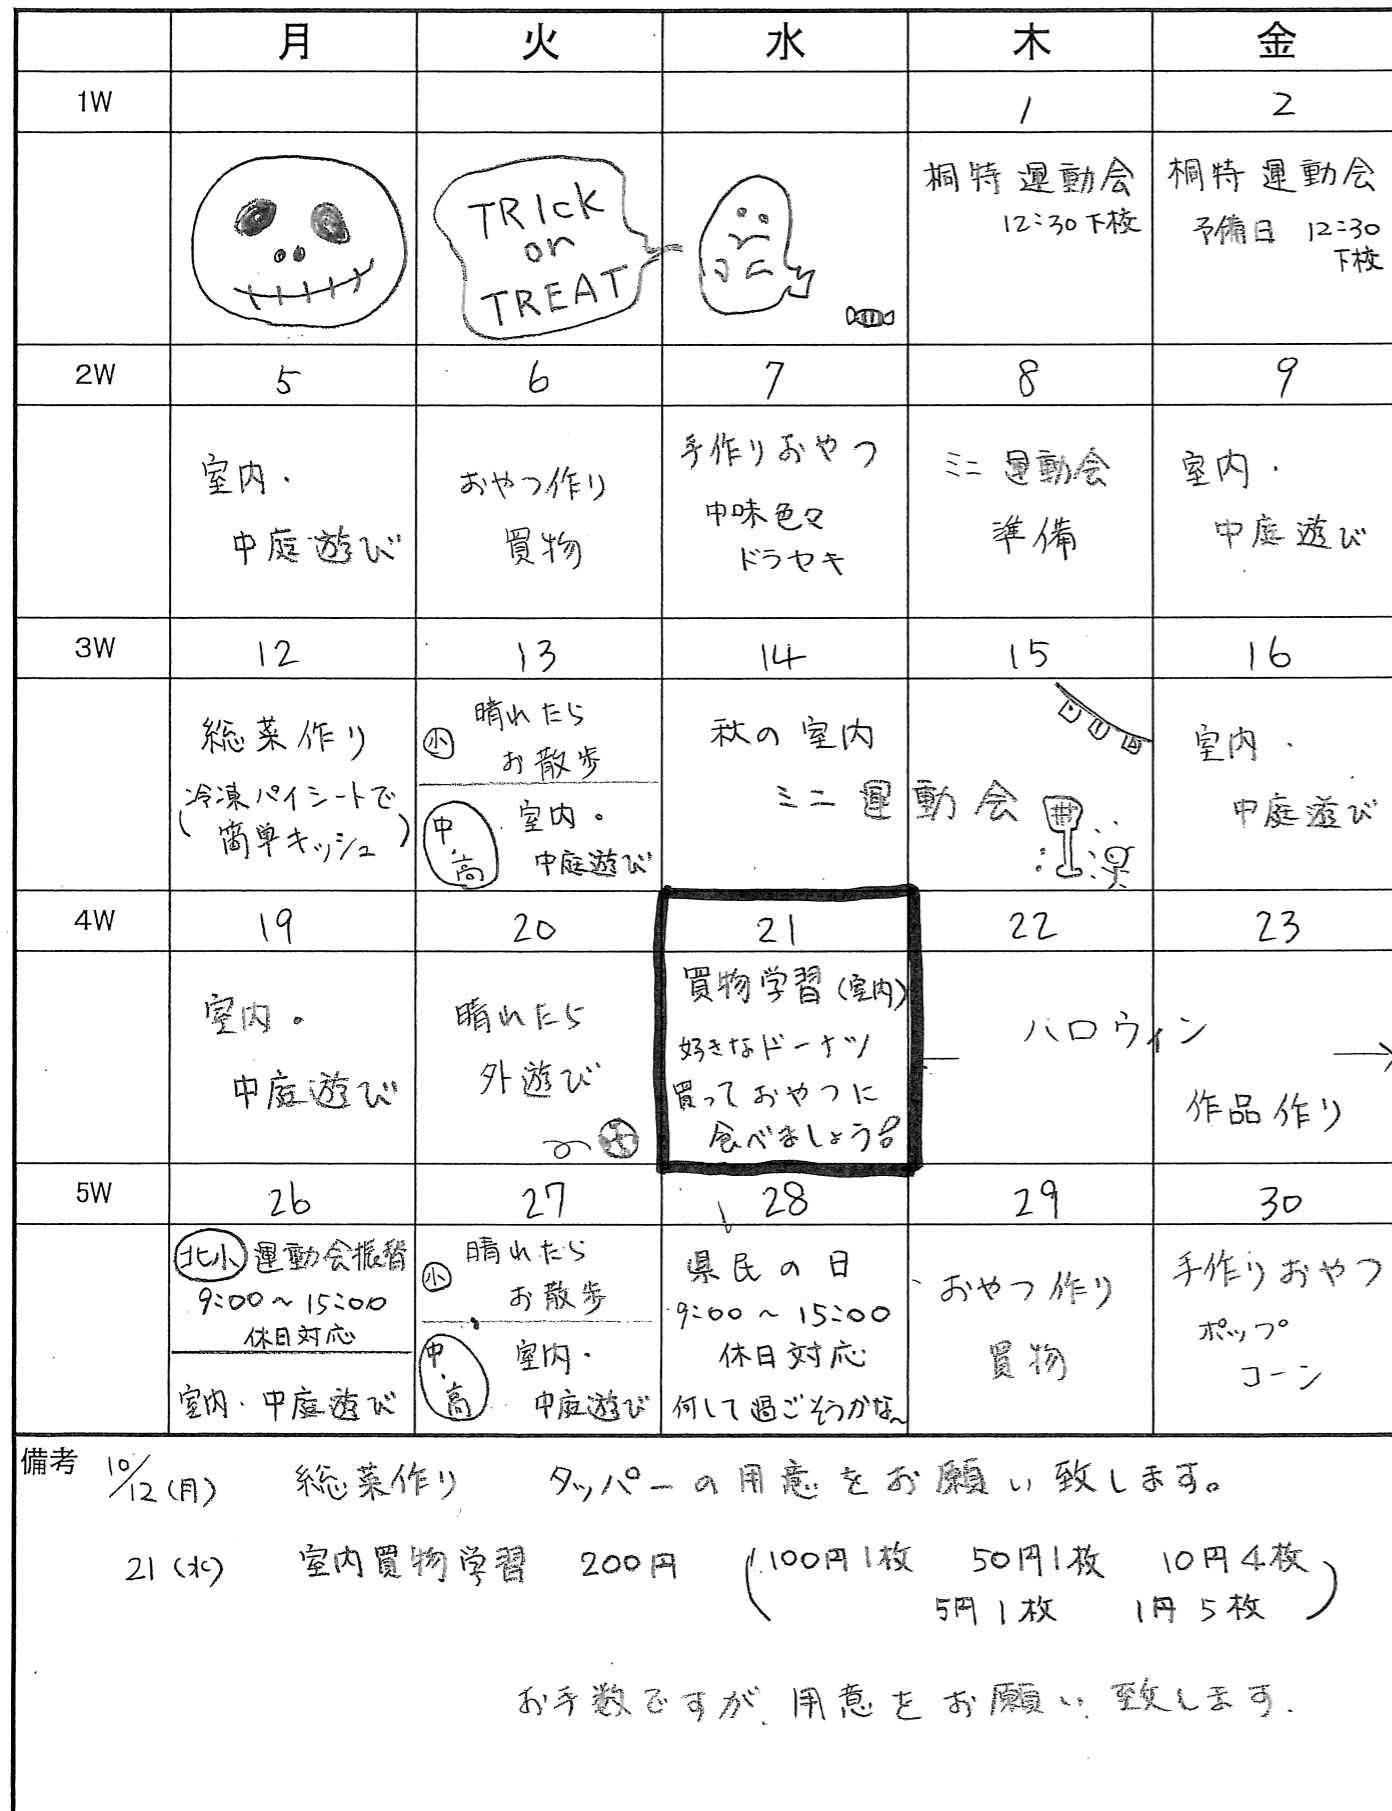 月 火 水 木 金
1W 1 2
TRIck
or
TREAT
桐特運動会
12:30下校
桐特運動会
予備日 12:30
下校
2W 5 6 7 8 9
室内・
中庭遊び
おやつ作り
買物
手作りおやつ
中味色々
ドラセキ
ミニ運動会
準備
室内・
中庭遊び
3W 12 13 14 15 16
総菜作り
(冷凍パイシートで
簡単キッシュ)
小 晴れたら
お散歩
中・高 室内・
中庭遊び
秋の室内
ミニ運動会
室内・
中庭遊び
4W 19 20 21 22 23
室内・
中庭遊び
晴れたら
外遊び
買物学習(室内)
好きなドーナツ
買っておやつに
食べましょう!
ハロウィン →
作品作り
5W 26 27 28 29 30
北小 運動会振替
9:00~15:00
休日対応
室内・中庭遊び
小 晴れたら
お散歩
中・高 室内・
中庭遊び
県民の日
9:00~15:00
休日対応
何して過ごそうかな~
おやつ作り
買物
手作りおやつ
ポップ
コーン
備考 10/12(月) 総菜作り タッパーの用意をお願い致します。
21(水) 室内買物学習 200円 (100円1枚 50円1枚 10円4枚
5円1枚 1円5枚)
お手数ですが、用意をお願い致します.